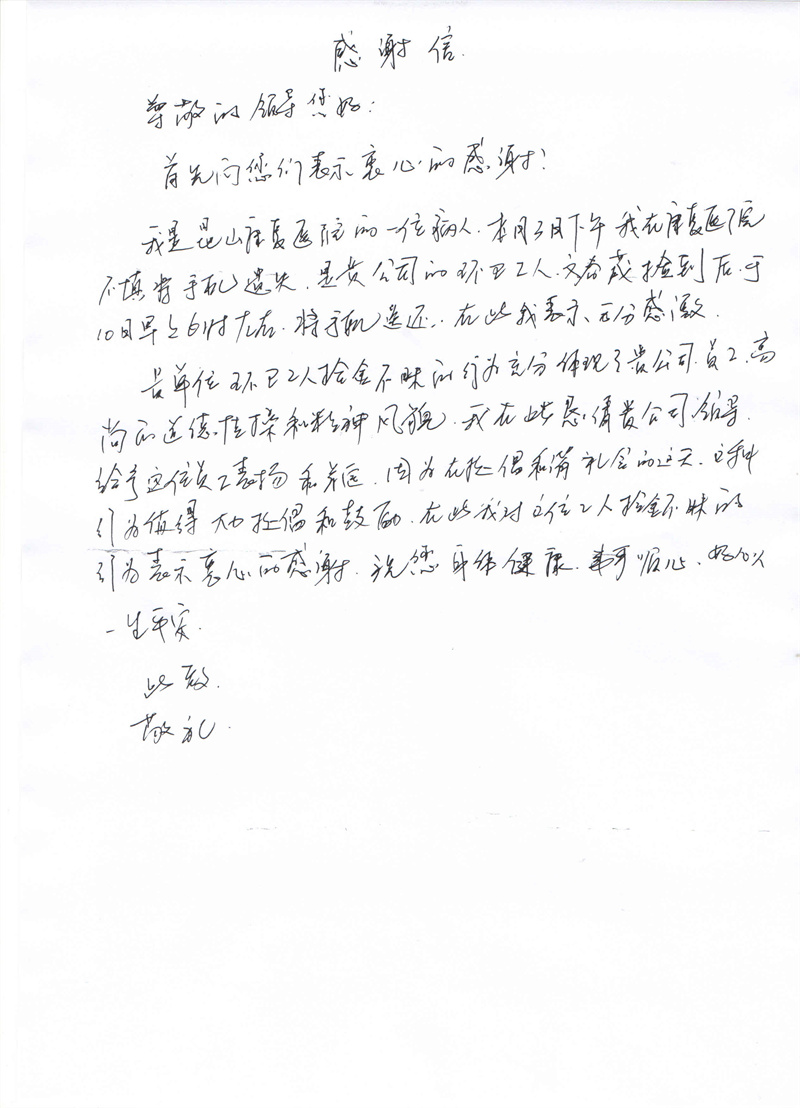 感谢信
尊敬的领导您好:
首先向您们表示衷心的感谢!
我是昆山康复医院的一位病人.本月3日下午我在康复医院
不慎将手机遗失.是贵公司的环卫工人.文春葳捡到后.于
10日早上6时左右.将手机送还.在此我表示万分感激.
贵单位环卫工人拾金不昧的行为充分体现了贵公司员工高
尚的道德情操和精神风貌.我在此恳请贵公司领导.
给予这位员工表扬和关注.因为在提倡和谐社会的这天.这种
行为值得大力提倡和鼓励.在此我对这位工人拾金不昧的
行为表示衷心的感谢.祝您身体健康.事事顺心.好人
一生平安.
此致.
敬礼.